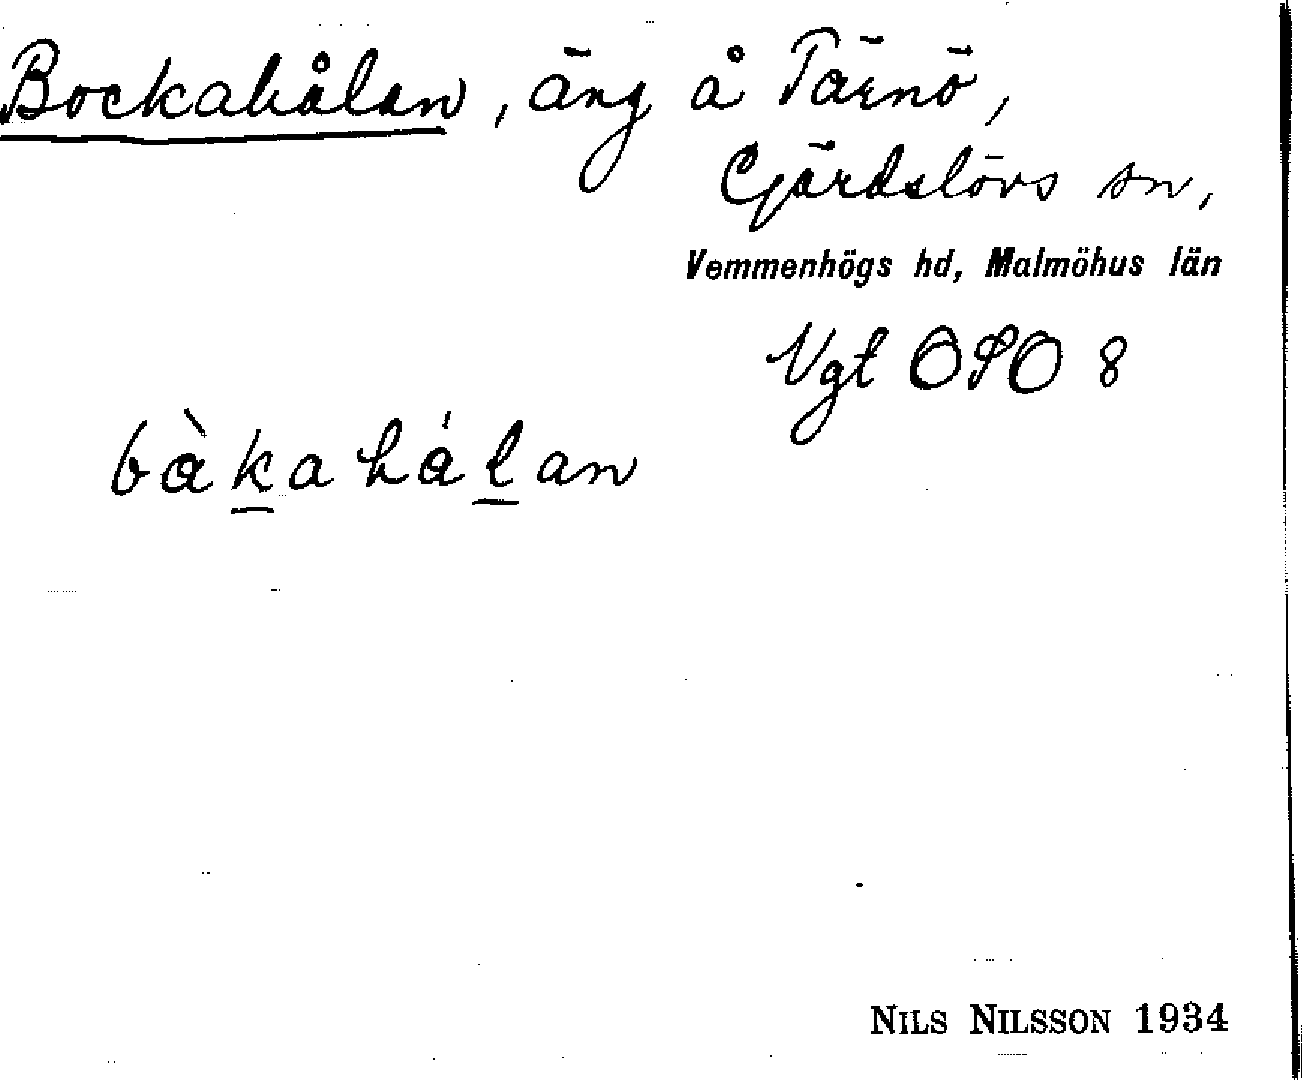 Bockahålan, äng å Tärnö,
Gärdslövs sn,
Vemmenhögs hd, Malmöhus län
Vgt 8
bàkahálan
NILS NILSSON 1934